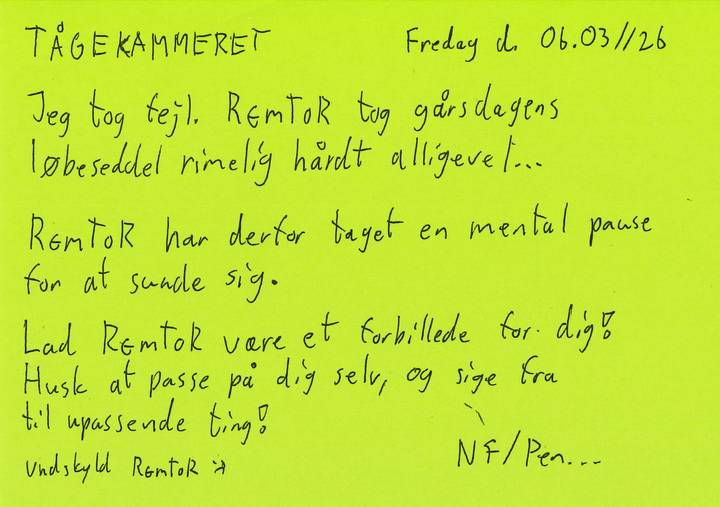 TÅGEKAMMERET Fredag d. 06.03//26
Jeg tog fejl. REMToR tog gårsdagens
løbeseddel rimelig hårdt alligevel...
REMToR har derfor taget en mental pause
for at sunde sig.
Lad REMToR være et forbillede for dig!
Husk at passe på dig selv, og sige fra
til upassende ting!
Undskyld REMToR :×
NF/Pen...